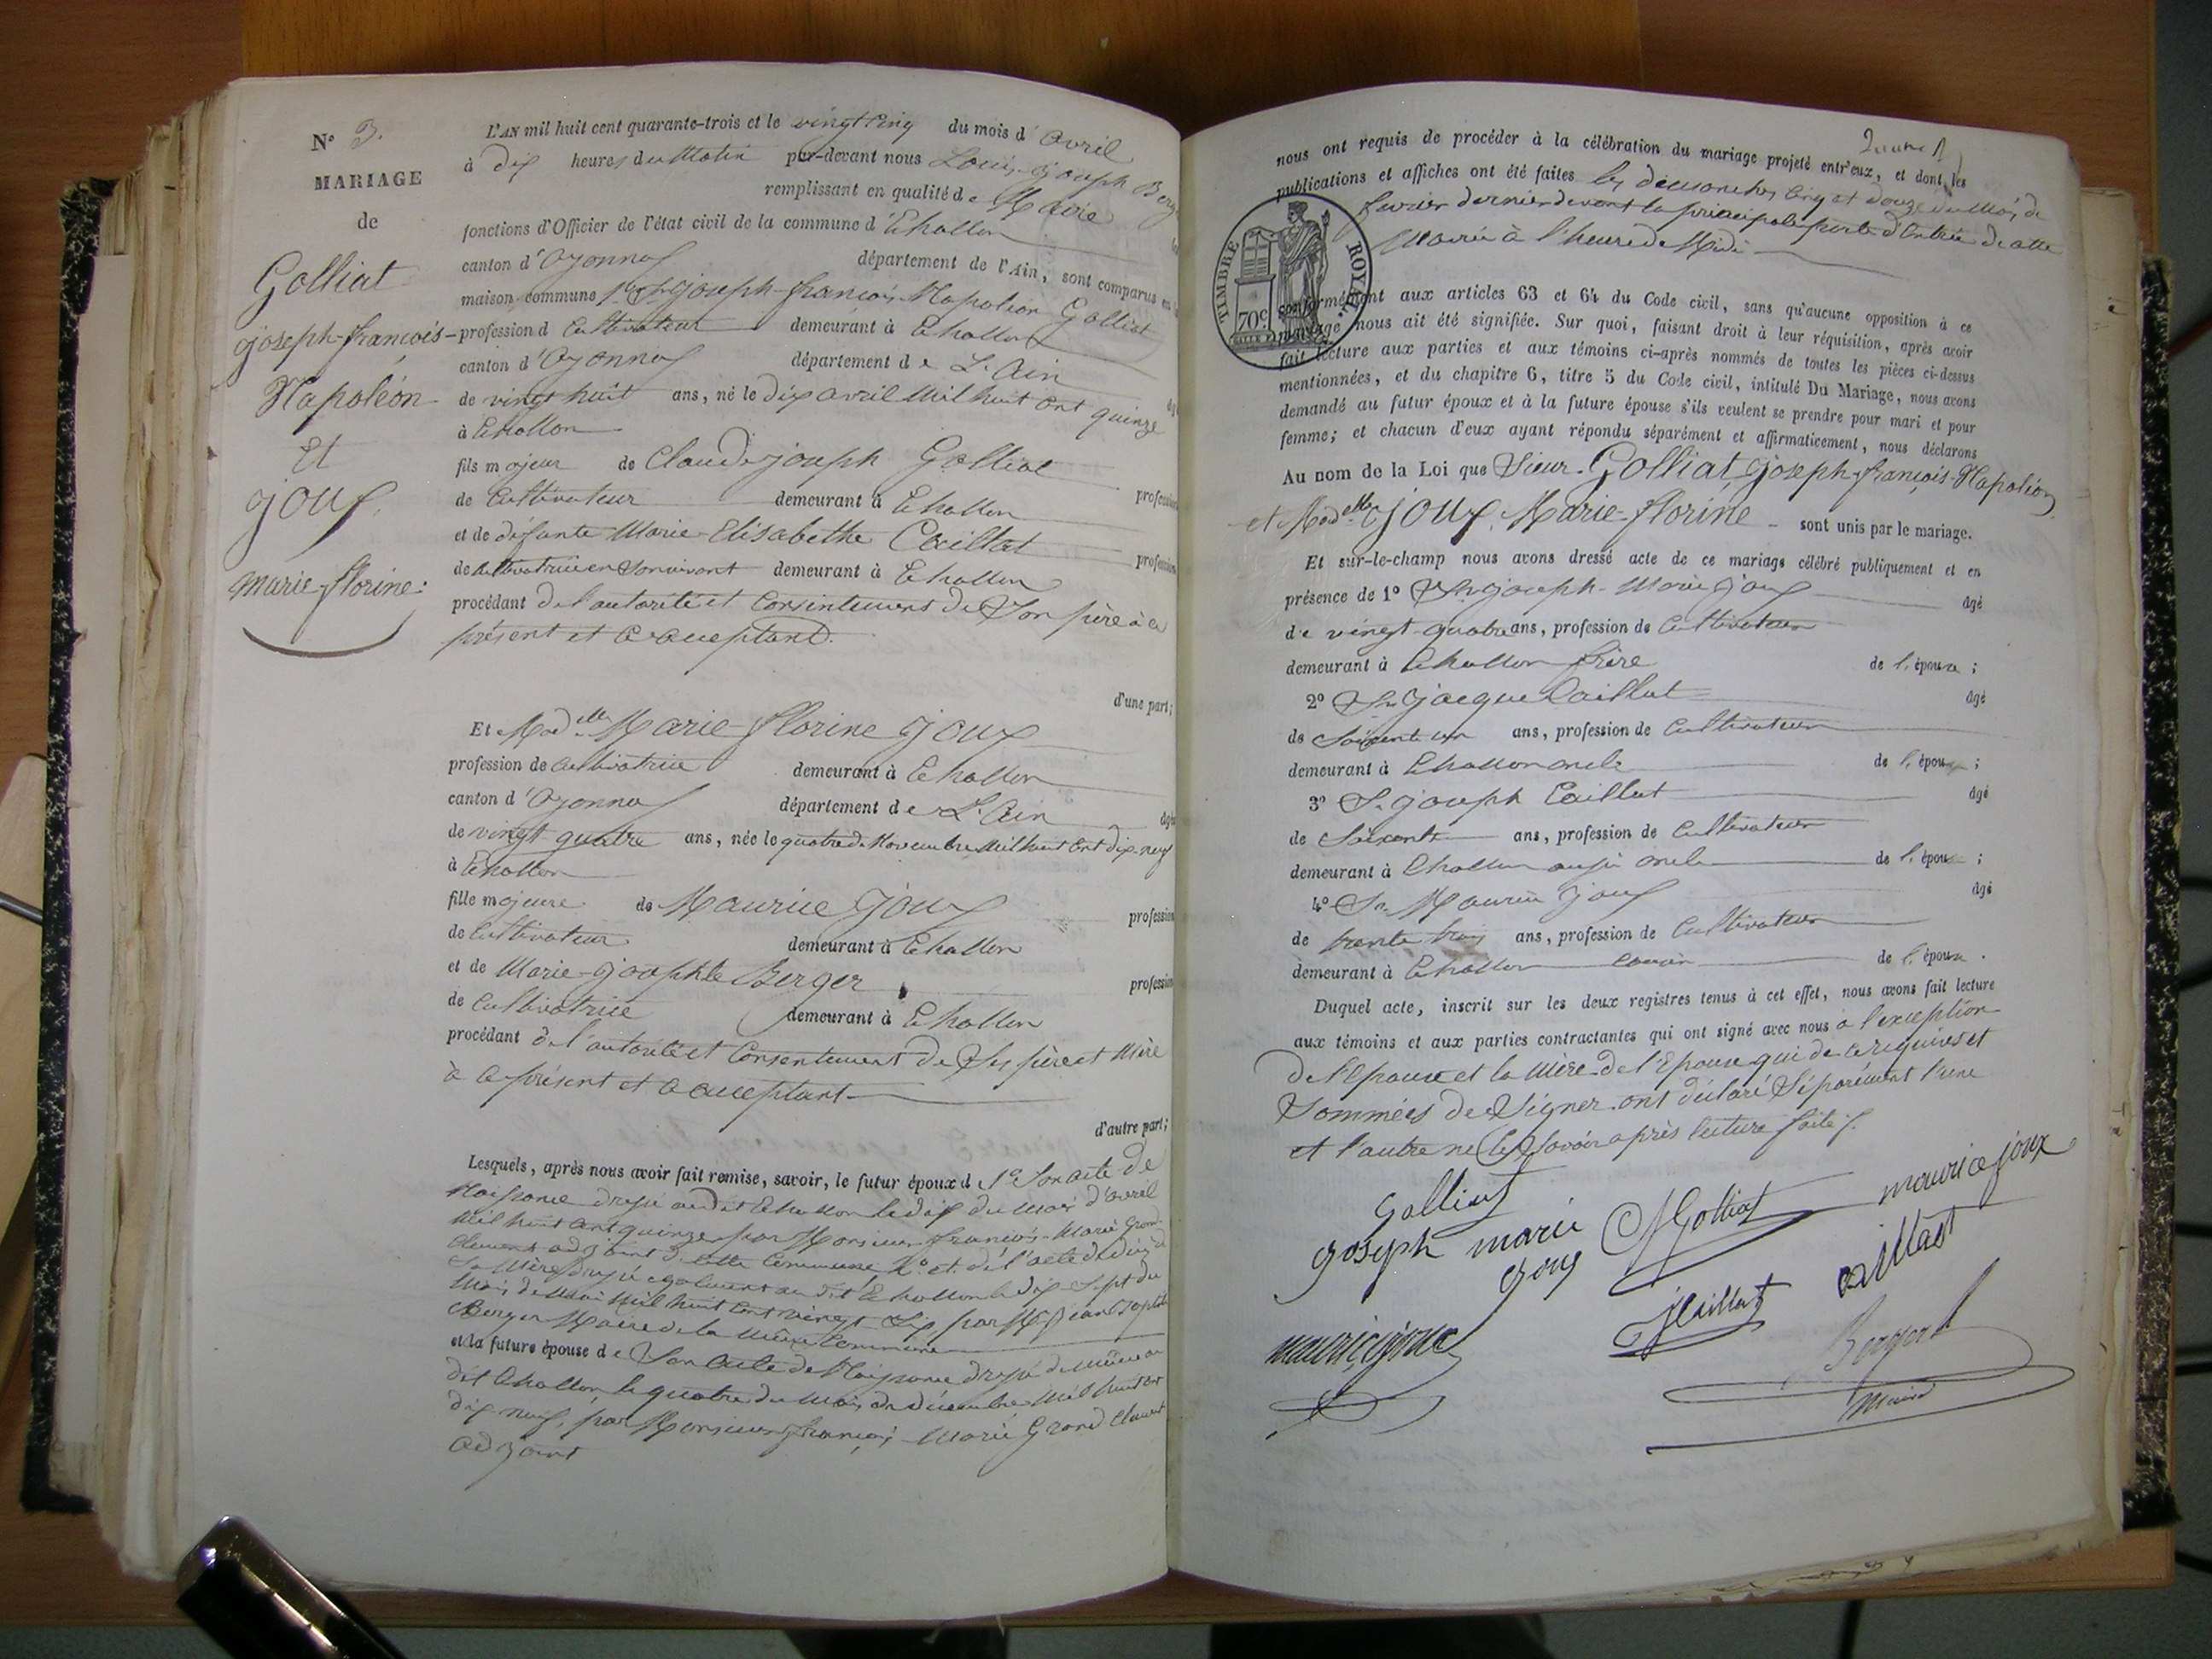 N° 3.
MARIAGE
de
Golliat
joseph-françois-
Napoléon
Et
joux
marie-florine:
L'AN mil huit cent quarante-trois et le vingt cinq du mois d'avril
à dix heures du Matin par-devant nous Louis-joseph Berger
remplissant en qualité de Maire
fonctions d'Officier de l'état civil de la commune d'Echallon
canton d'Oyonnax département de l'Ain, sont comparus en
maison commune 1° Sr joseph-françois-Napoléon Golliat
profession de Cultivateur demeurant à Echallon
canton d'Oyonnax département de L'Ain
de vingt huit ans, né le dix avril Mil huit cent quinze
à Echallon
fils majeur de Claude joseph Golliat
de Cultivateur demeurant à Echallon profession
et de défunte Marie-Elisabethe Caillat
de Cultivatrice en Son vivant demeurant à Echallon profession
procédant de l'autorité et Consintement de Son père à ce
présent et acceptant.
d'une part;
Et Madelle Marie-florine joux
profession de Cultivatrice demeurant à Echallon
canton d'Oyonnax département de L'Ain
de vingt quatre ans, née le quatre de Novembre Mil huit cent dix-neuf
à Echallon
fille majeure de Maurice joux
de Cultivateur demeurant à Echallon profession
et de Marie-josephte Berger
de Cultivatrice demeurant à Echallon profession
procédant de l'autorité et Consentement de Ses père et Mère
à ce présent et acceptant
d'autre part;
Lesquels, après nous avoir fait remise, savoir, le futur époux de 1° Son acte de
Naissance dressé au dit Echallon le dix du mois d'avril
Mil huit cent quinze par Monsieur françois-Marie Grand-
Clement adjoint de cette Commune 2° et de l'acte de décès de
Sa Mère dressé egalement au dit Echallon le dix Sept du
Mois de Mai Mil huit cent vingt Six par Mr Jean Baptiste
Berger Maire de la même Commune
et la future épouse de Son Acte de Naissance dressé de même au
dit Echallon le quatre du Mois de décembre Mil huit cent
dix neuf, par Monsieur françois Marie Grand Clement
adjoint
nous ont requis de procéder à la célébration du mariage projeté entr'eux, et dont les
publications et affiches ont été faites les dimanches cinq et douze du Mois de
fevrier dernier devant la principale porte d'Entrée de cette
Mairie à l'heure de Midi
TIMBRE ROYAL.
70c
conformément aux articles 63 et 64 du Code civil, sans qu'aucune opposition à ce
mariage nous ait été signifiée. Sur quoi, faisant droit à leur réquisition, après avoir
fait lecture aux parties et aux témoins ci-après nommés de toutes les pièces ci-dessus
mentionnées, et du chapitre 6, titre 5 du Code civil, intitulé Du Mariage, nous avons
demandé au futur époux et à la future épouse s'ils veulent se prendre pour mari et pour
femme; et chacun d'eux ayant répondu séparément et affirmativement, nous déclarons
Au nom de la Loi que Sieur Golliat joseph-françois-Napoléon
et Madelle joux, Marie-florine sont unis par le mariage.
Et sur-le-champ nous avons dressé acte de ce mariage célébré publiquement et en
présence de 1° Sr joseph-Marie joux âgé
de vingt-quatre ans, profession de Cultivateur
demeurant à Echallon frère de l'épouse;
2° Sr jacque Caillat âgé
de Soixante un ans, profession de Cultivateur
demeurant à Echallon oncle de l'époux;
3° Sr joseph Caillat âgé
de Soixante ans, profession de Cultivateur
demeurant à Echallon aussi oncle de l'époux;
4° Sr Maurice joux âgé
de trente trois ans, profession de Cultivateur
demeurant à Echallon cousin de l'épouse.
Duquel acte, inscrit sur les deux registres tenus à cet effet, nous avons fait lecture
aux témoins et aux parties contractantes qui ont signé avec nous a l'exception
de l'Epouse et la Mère de l'Epouse qui de ce requises et
Sommées de Signer ont déclaré Séparément l'une
et l'autre ne le Savoir après lecture faite.
Golliat
joseph marie joux
Golliat
maurice joux
Caillat
caillat
maurice joux
Berger
maire